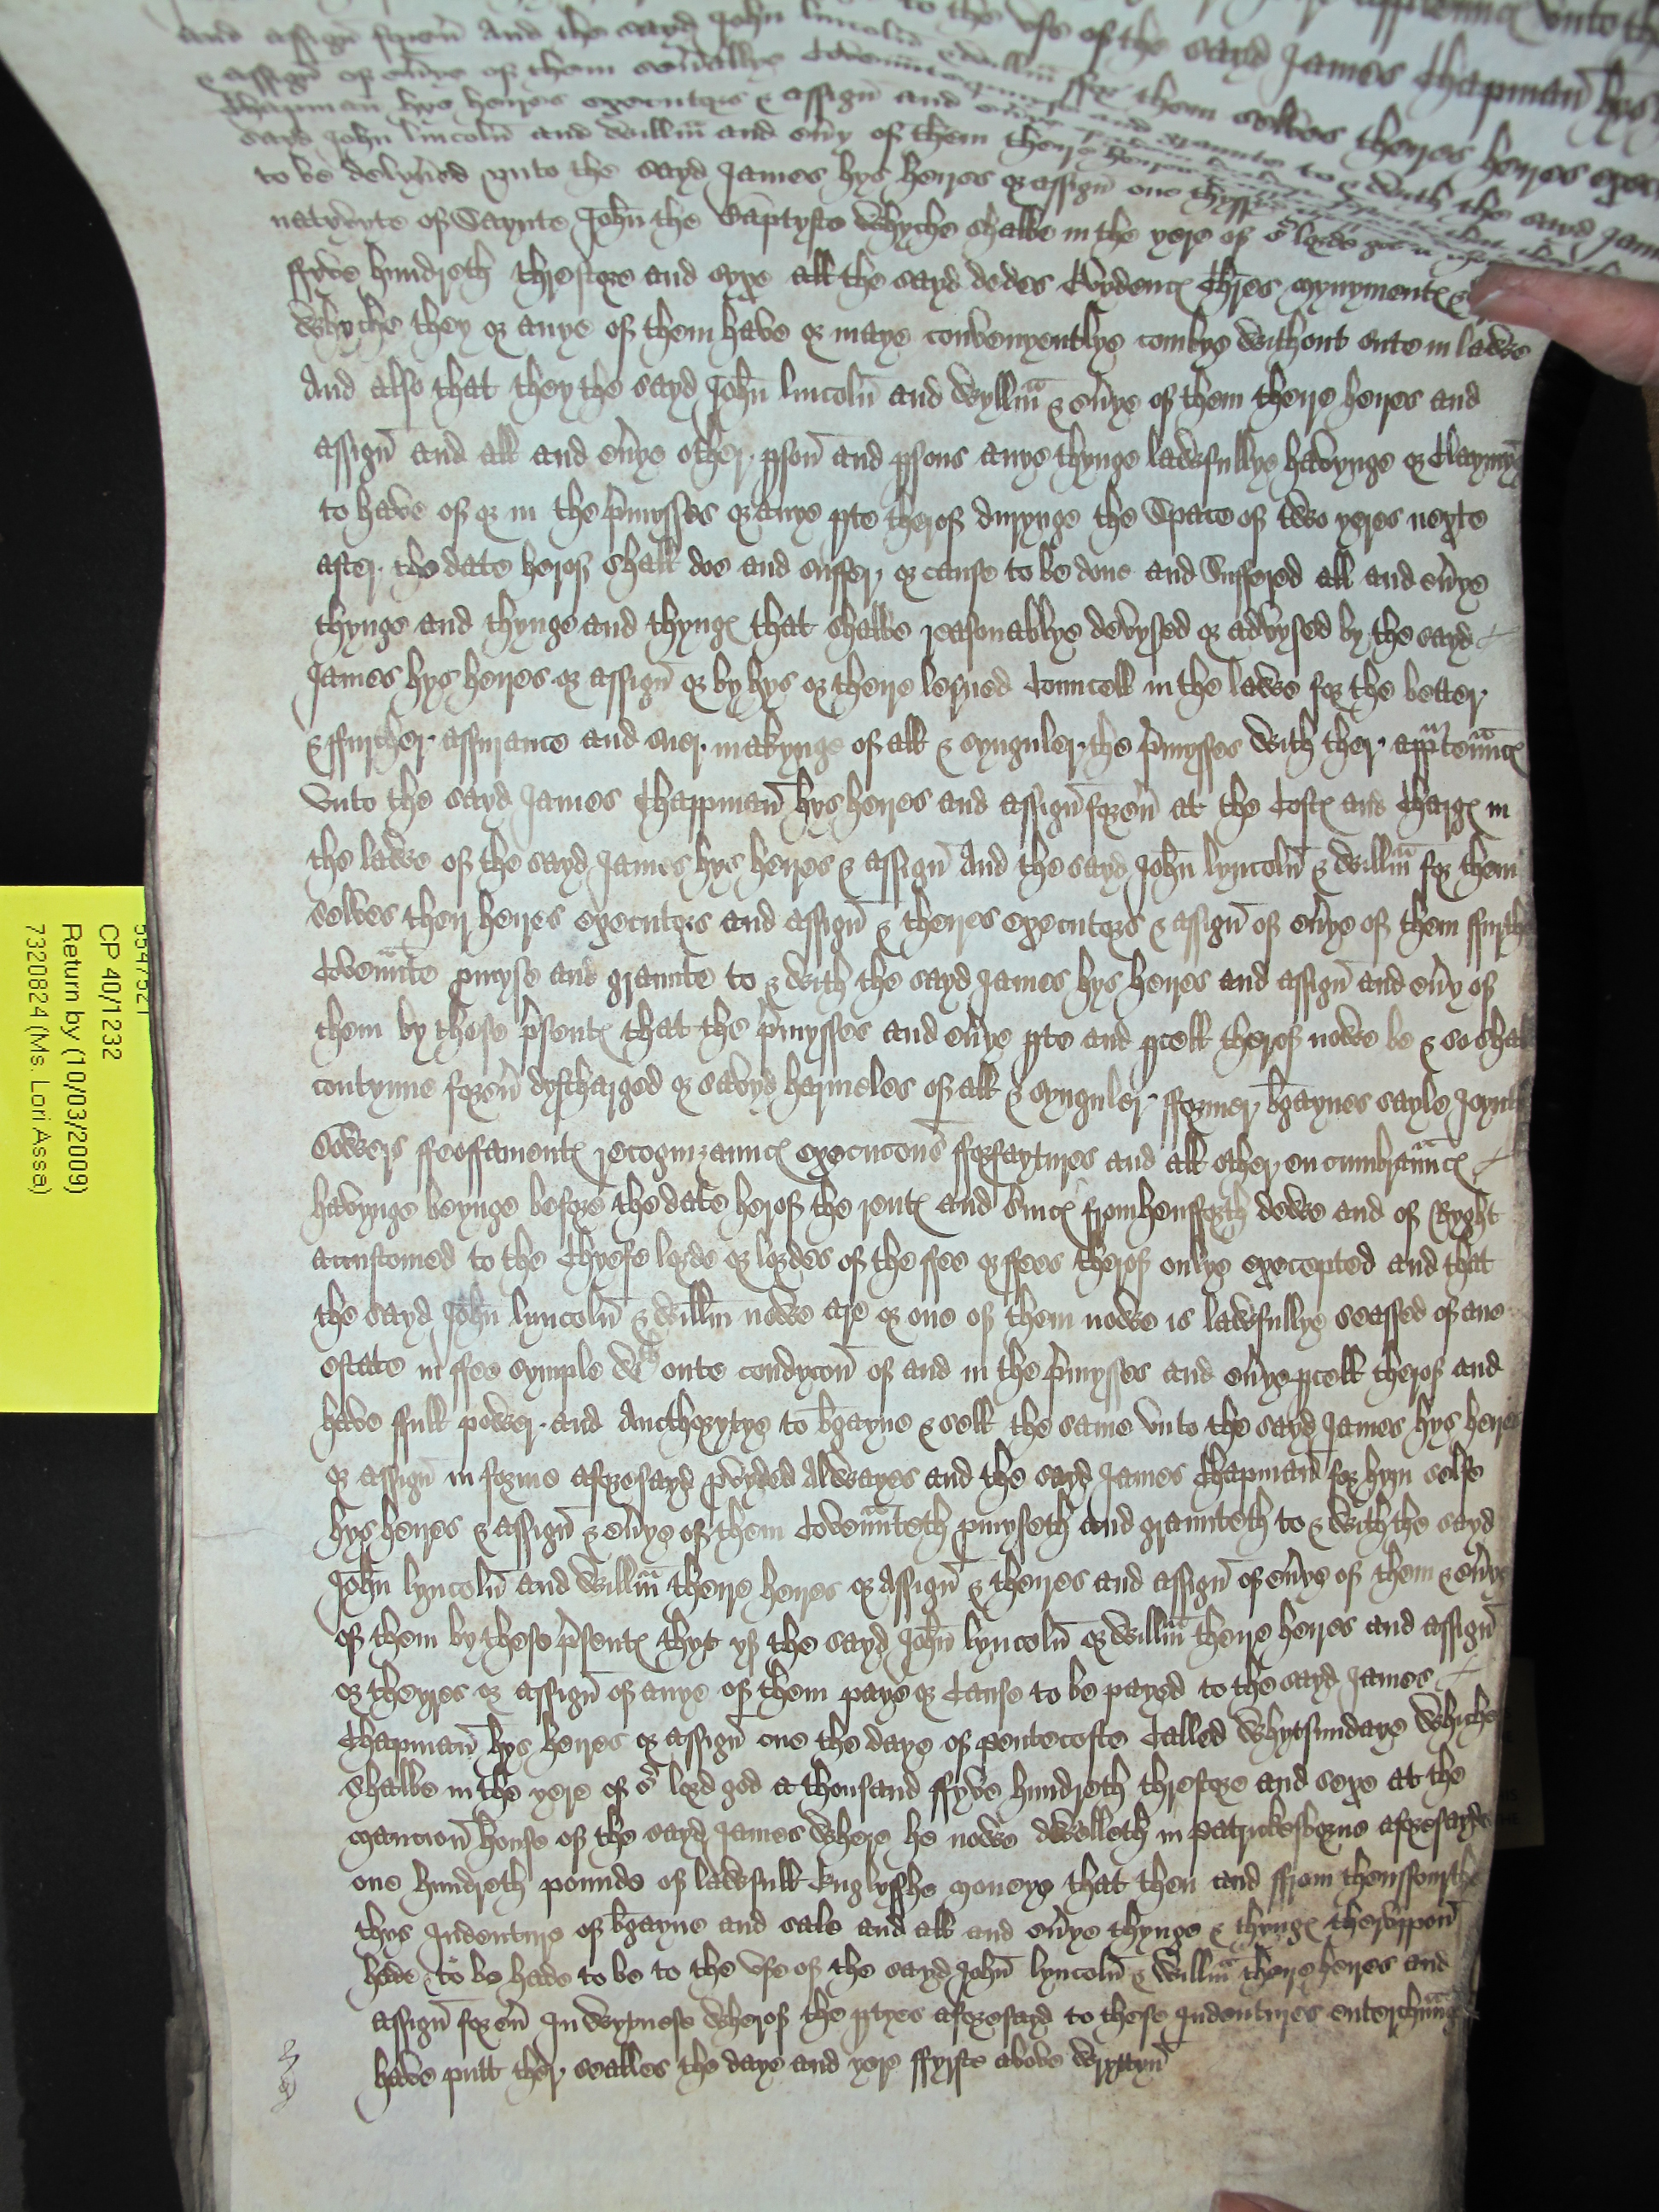 to the use of the sayd James Chapman hys
and assign̄ foreu̾ And the sayd John lincoln̄ & willm̄ for them selves theyre heyres execu
& assign̄ or eu̾ye of them seu̾allye Covenn̄te and graunte to & with the sayd Jam
Chapman hys heyres executors & assign̄ and
sayd John lincoln̄ and willm̄ and eu̾y of them theyre heyres
to be delyu̾ed vnto the sayd James hys heyres or assign̄ one thys
natyvyte of Saynte John the Baptyste whyche shalbe in the yere of oʳ lorde god a
ffyve hundreth threscore and syxe all the sayd dedes Evydencꝭ Chr̄es mynymentꝭ &
whyche they or anye of them have or maye convenyentlye combye without sute in lawe
And also that they the sayd John lincoln̄ and wyllm̄ & eu̾ye of them theyre heyres and
assign̄ and all and eu̾ye other pson̄ and psons anye thynge lawfullye havynge or Claymyng
to have of or in the p̾mysses or anye pte therof durynge the Space of two yeres nexte
after the date herof shall doe and suffer or cause to be done and Suffered all and eu̾ye
thynge and thynge and thyngꝭ that shalbe reasonablye devysed or advysed by the sayd
James hys heyres or assign̄ or by hys or theyre lerned Councell in the lawe for the better
& ffurther assurance and suer makynge of all & synguler the p̾mysses with ther app̾tenn̄cꝭ
vnto the sayd James Chappman̄ hys heyres and assign̄ foreu̾ at the Costꝭ and Chargꝭ in
the lawe of the sayd James hys heyres & assign̄ And the sayd John lyncoln̄ & willm̄ for them
selves ther heyres executors and assign̄ & theyres executors & assign̄ of eu̾ye of them ffurthe
Covenn̄te pmyse and graunte to & with the sayd James hys heyres and assign̄ and eu̾y of
them by these p̾sentꝭ that the p̾mysses and eu̾ye pte and pcell therof nowe be & so shall
contynue foreu̾ dyscharged or savyd harmeles of all & synguler fformer b̾gaynes sayle Joynt
Dowers ffeoffamentꝭ recognizauncꝭ execucons fforfaytures and all other encumbrauncꝭ
havynge beynge before the date herof the rentꝭ and s̾uicꝭ from henfforth dewe and of Ryght
accustomed to the Chyefe lorde or lordes of the ffee or ffees therof onlye excepted and that
the sayd John lyncoln̄ & willm̄ nowe are or one of them nowe is lawfullye seassed of ane
estate in ffee symple wᵗʰoute condycon̄ of and in the p̾mysses and eu̾ye pcell therof and
have ffull power and Aucthorytye to b̾gayne & sell the same vnto the sayd James hys heyres
or assign̄ in forme aforesayd pvyded Alwayes and the sayd James Chapman̄ for hym selfe
hys heyres & assign̄ & eu̾ye of them Covenn̄teth pmyseth and graunteth to & with the sayd
John lyncoln̄ and willm̄ theyre heyres or Assign̄ & theyres and assign̄ of eu̾ye of them & eu̾ye
of them by these p̾sentꝭ thyt yf the sayd John lyncoln̄ or willm̄ theyre heyres and assign̄
or theyres or assign̄ of anye of them paye or Cause to be payed to the sayd James
Chapman̄ hys heyres or assign̄ one the daye of pentecoste Called whytsundaye whiche
shalbe in the yere of oʳ lord god a thousand ffyve hundreth threscore and sexe at the
mancion̄ house of the sayd James where he nowe dwelleth in patrickesborne aforesayde
one hundreth pounde of lawfull Englysshe moneye that then and ffrom thensfourthe
thys Indenture of b̾gayne and sale and all and eu̾ye thynge & thyngꝭ thervppon̄
hade & to be hade to be to the vse of the sayd John lyncoln̄ & willm̄ theyre heyres and
assign̄ foreu̾ In wytnese wherof the ptyes aforesayd to these Indentures enterchaung
have putt ther sealles the daye and yere ffyrste above wryttyn̄
5547521
CP 40/1232
Return by (10/03/2009)
7320824 (Ms. Lori Assa)